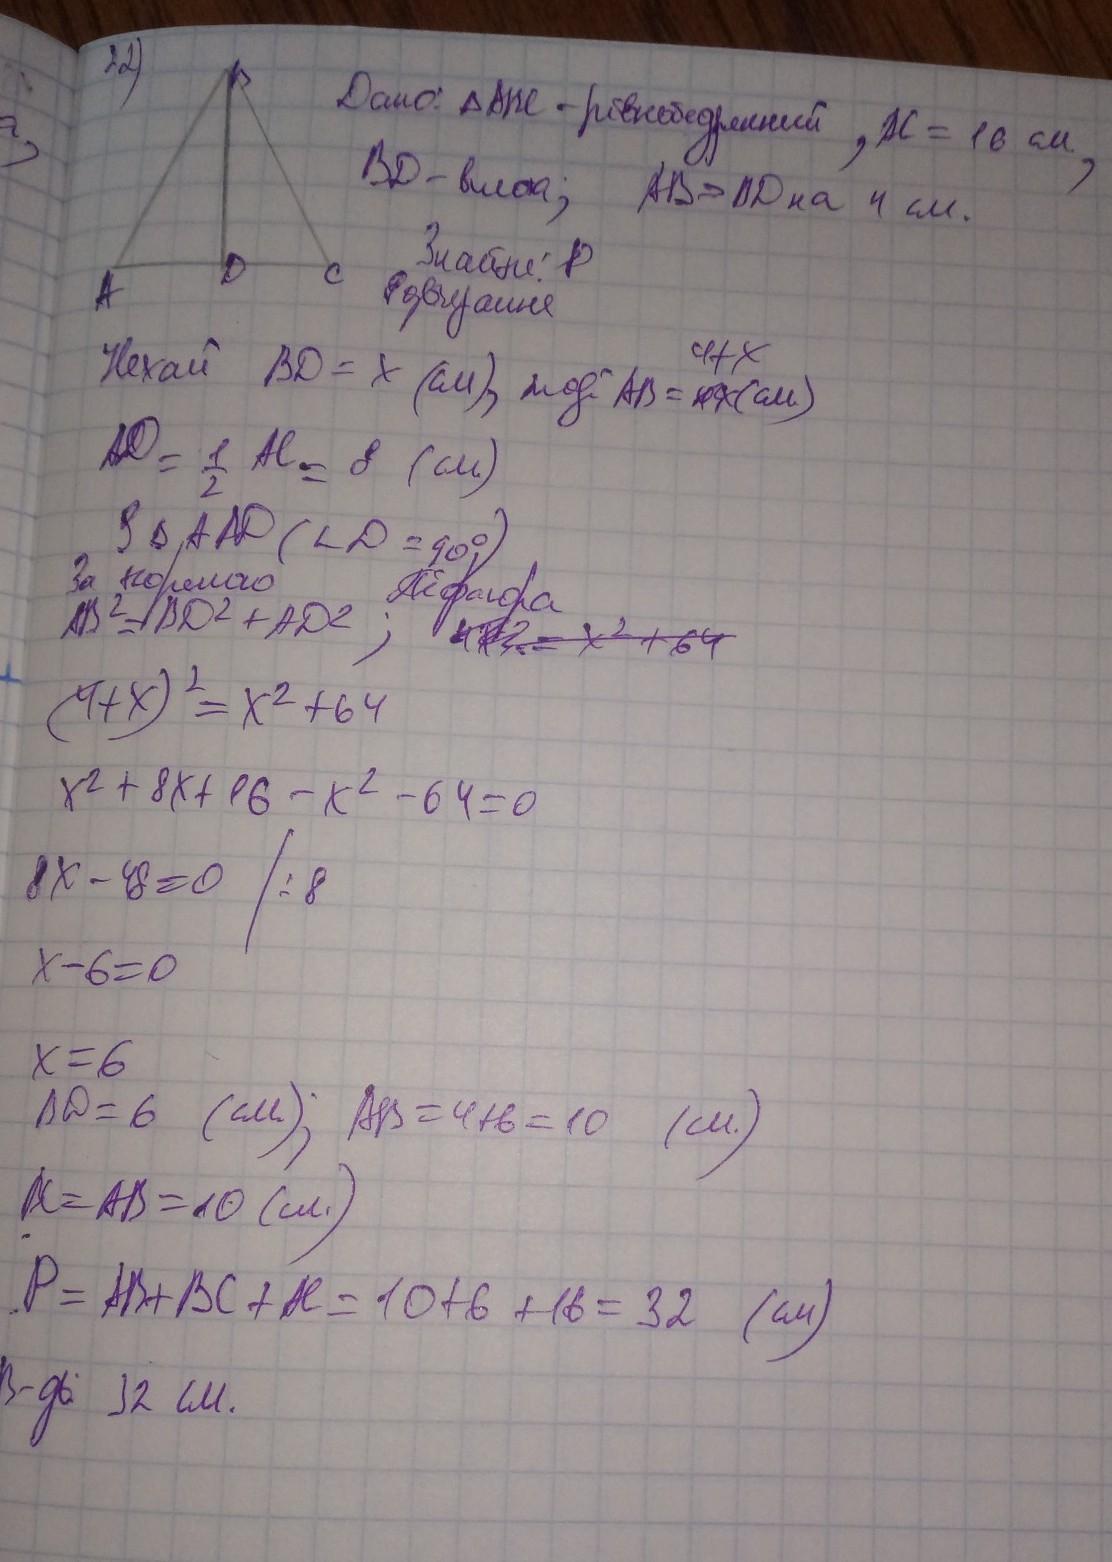 22)
B
Дано: △ABC - рівнобедренний, AC = 16 см,
BD - висота; AB > BD на 4 см.
A D C
Знайти: P
Розв'язання
Нехай BD = x (см), тоді AB = 4x (см)
4+x
AD = 1/2 AC = 8 (см)
З △ ABD (∠D = 90°)
За теоремою Піфагора
AB² = BD² + AD²; = x² + 64
(4+x)² = x² + 64
x² + 8x + 16 - x² - 64 = 0
8x - 48 = 0 / : 8
x - 6 = 0
x = 6
BD = 6 (см); AB = 4+6 = 10 (см.)
BC = AB = 10 (см.)
P = AB + BC + AC = 10+6 + 16 = 32 (см)
В-дь 32 см.